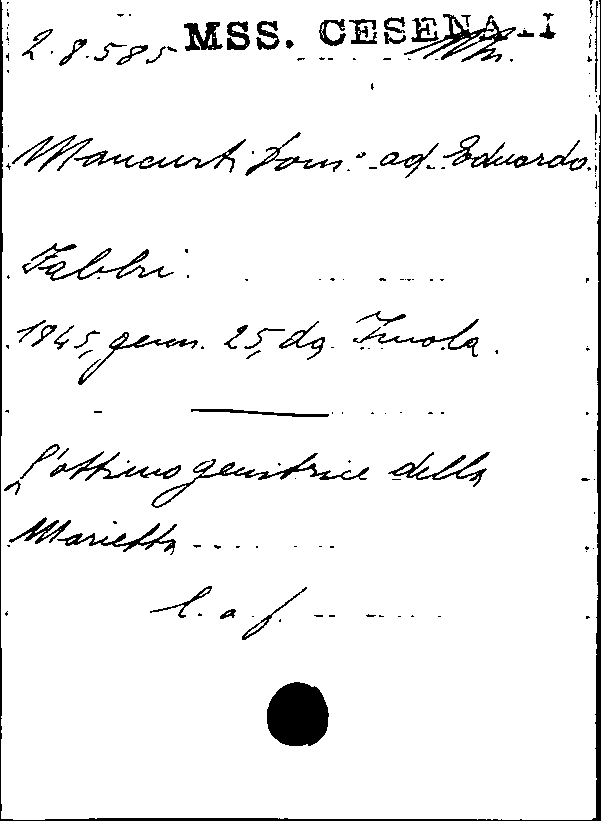 MSS. CESENA.I
2.8.585
Mancurti Dom.º ad Eduardo
Fabbri.
1845, genn. 25, da Imola.
L'ottima genitrice della
Marietta
l. a f.